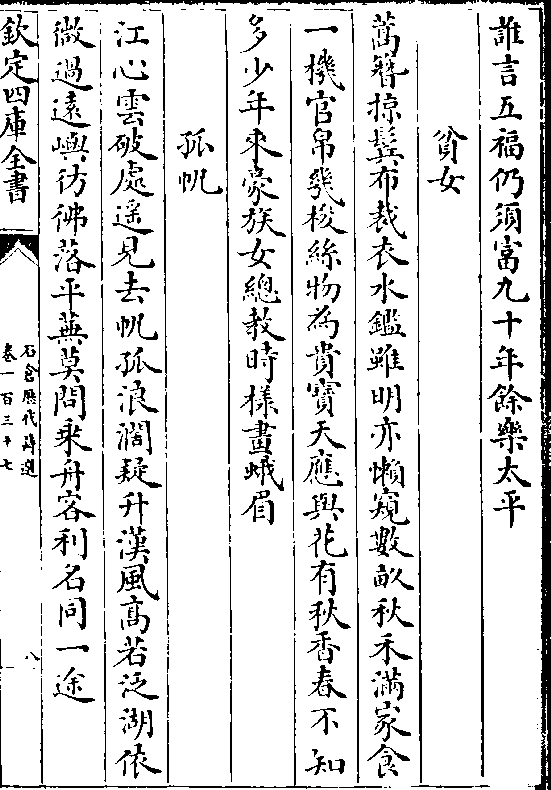 誰言五福仍須富九十年餘樂太平
貧女
蒿簪掠鬂布裁衣水鑑雖明亦懶窺數畝秋禾滿家食
一機官帛幾梭絲物為貴寳天應與花有秋香春不知
多少年來豪族女總教時樣畫蛾眉
孤帆
江心雲破處遥見去帆孤浪濶疑升漢風髙若泛湖依
微過遠嶼彷彿落平蕪莫問乘舟客利名同一途
欽定四庫全書
石倉歷代詩選
卷一百三十七
八